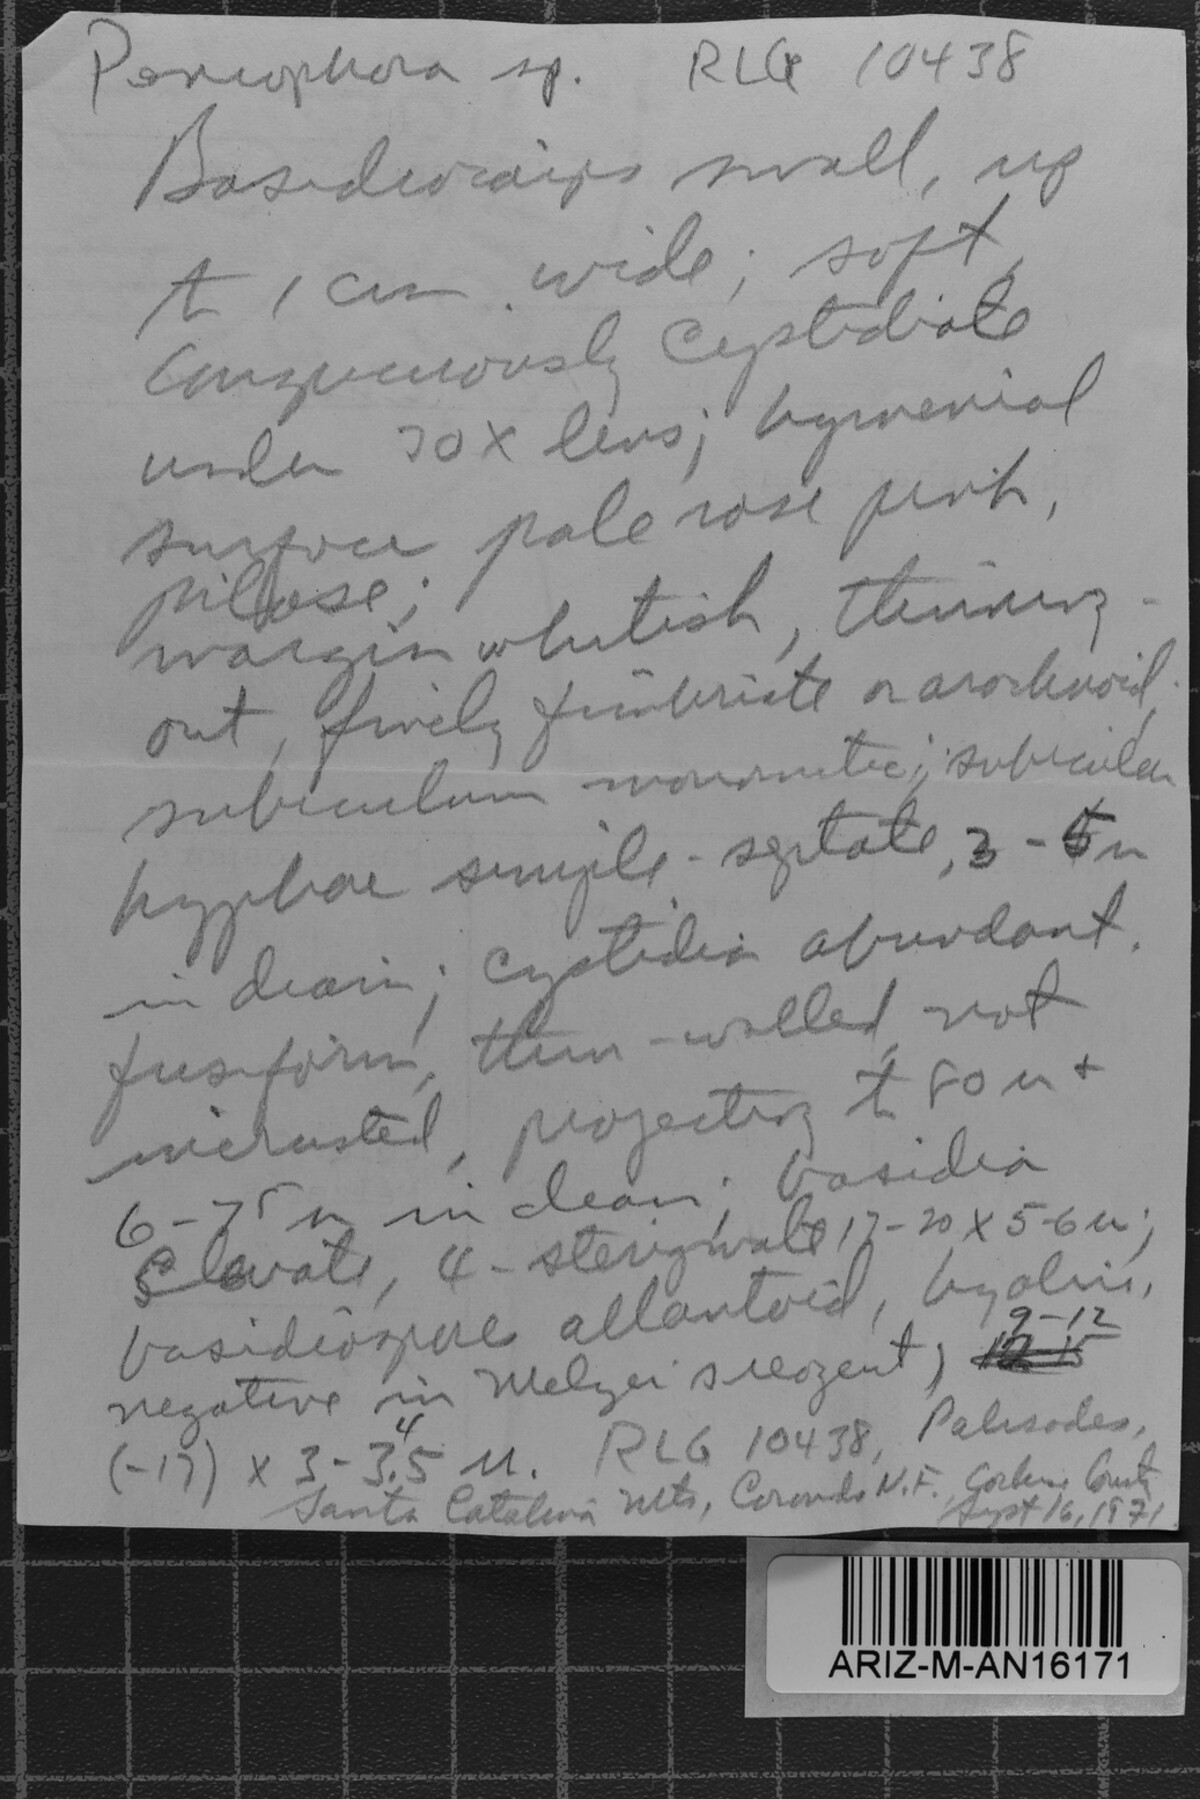 Peniophora sp. RLG 10438
Basidiocarps small, up
to 1 cm wide; soft,
conspicuously cystidiate
under 30X lens; hymenial
surface pale rose pink,
pilose;
margin whitish, thinning-
out, finely fimbriate or arachnoid;
subiculum monomitic; subicular
hyphae simple-septate, 3-5 u
in diam; cystidia abundant,
fusiform, thin-walled, not
incrusted, projecting to 80 u +
6-7.5 u in diam; basidia
clavate, 4-sterigmate 17-20 X 5-6 u;
basidiospore allantoid, hyalin,
negative in Melzer's reagent; 9-12
(-17) x 3-3.5 4 u. RLG 10438, Palisades,
Santa Catalina Mts, Coronado N.F. County
Sept 16, 1971
ARIZ-M-AN16171